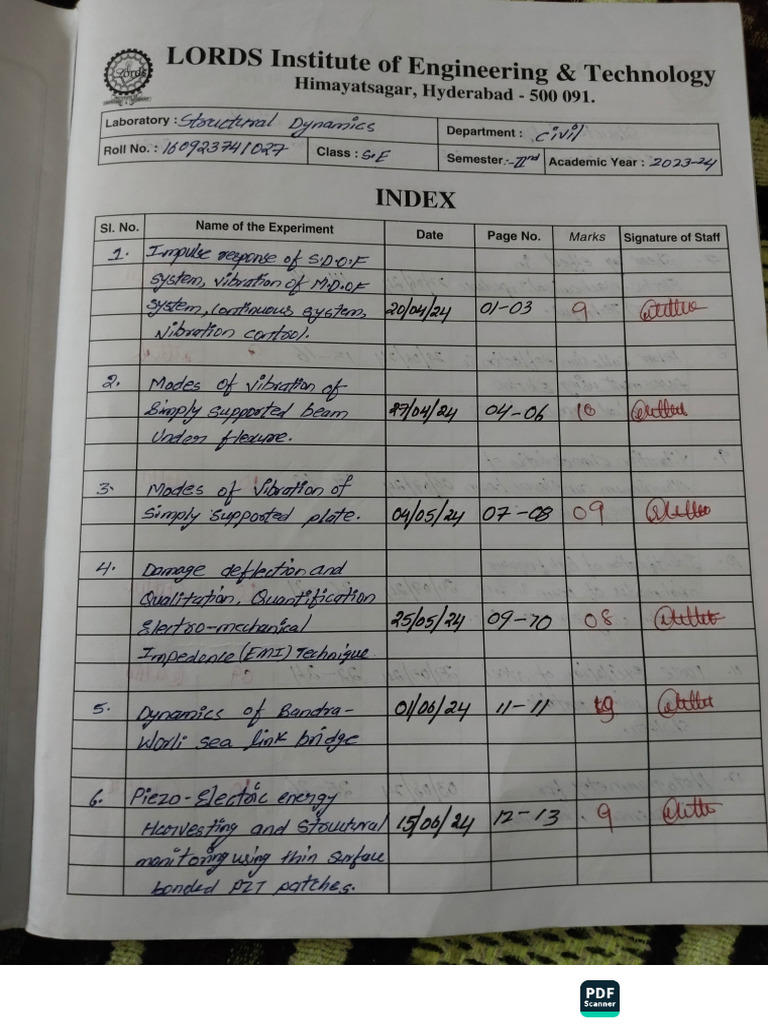 LORDS Institute of Engineering & Technology
Himayatsagar, Hyderabad - 500 091.
Lords
Laboratory : Structural Dynamics
Department : Civil
Roll No. : 160923741027
Class : S.E
Semester :- IInd
Academic Year : 2023-24
INDEX
Sl. No. Name of the Experiment Date Page No. Marks Signature of Staff
1. Impulse response of S.D.O.F
system, vibration of M.D.OF
system, continuous system, 20/04/24 01-03 9
Vibration control.
2. Modes of vibration of
Simply supported beam 27/04/24 04-06 10
Under flexure.
3. Modes of Vibration of
Simply supported plate. 04/05/24 07-08 09
4. Damage deflection and
Qualitation, Quantification
Electro-mechanical 25/05/24 09-10 08
Impedence (EMI) Technique
5. Dynamics of Bandra- 01/06/24 11-11 9
Worli sea link bridge
6. Piezo-Electric energy
Harvesting and Structural 15/06/24 12-13 9
monitoring using thin surface
bonded PZT patches.
PDF
Scanner